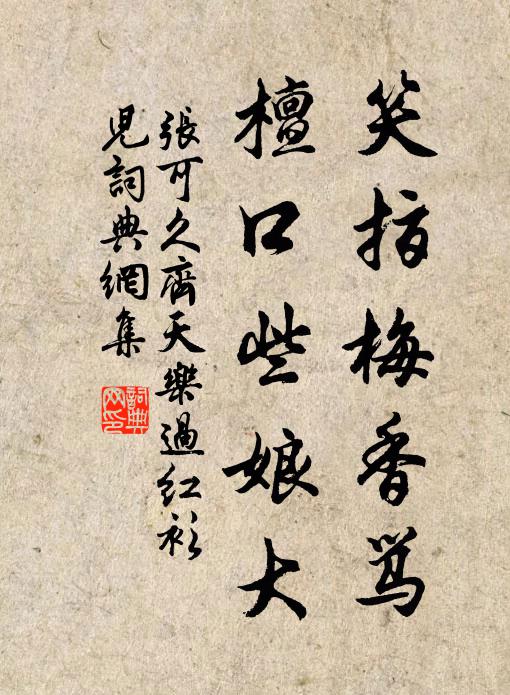 笑指梅香骂
檀口些娘大
張可久齊天樂過红衫
兒詞典網集
詞典网印